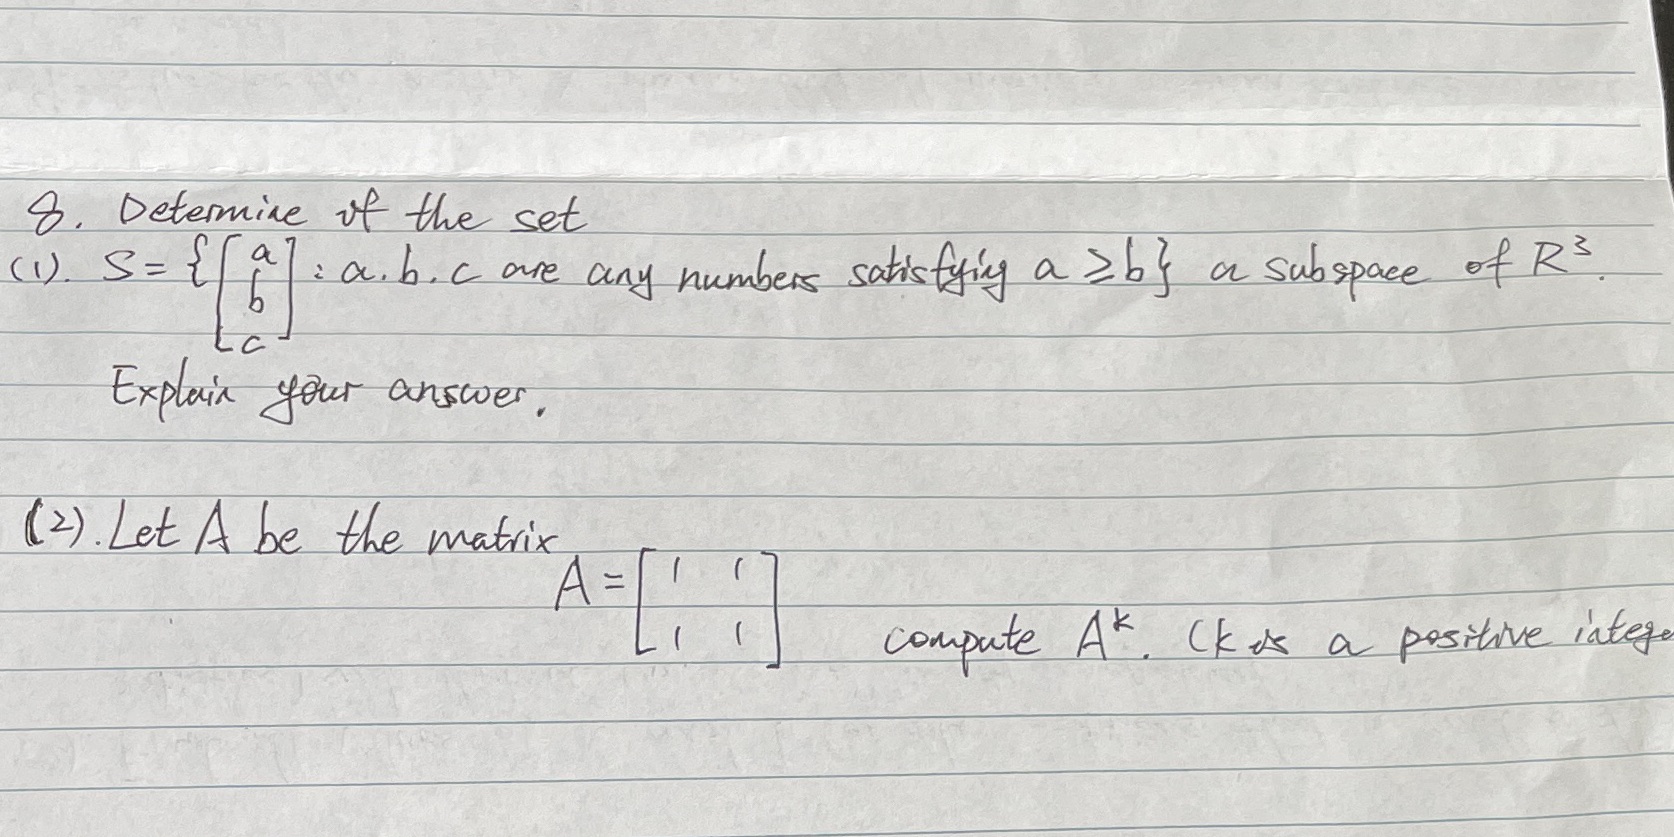 8. Determine if the set
(1). S = { [ a b c ] : a. b. c are any numbers satisfying a ≥ b } a subspace of R³.
Explain your answer.
(2). Let A be the matrix
A = [ 1 1
1 1 ]
compute Aᵏ. (k is a positive intege